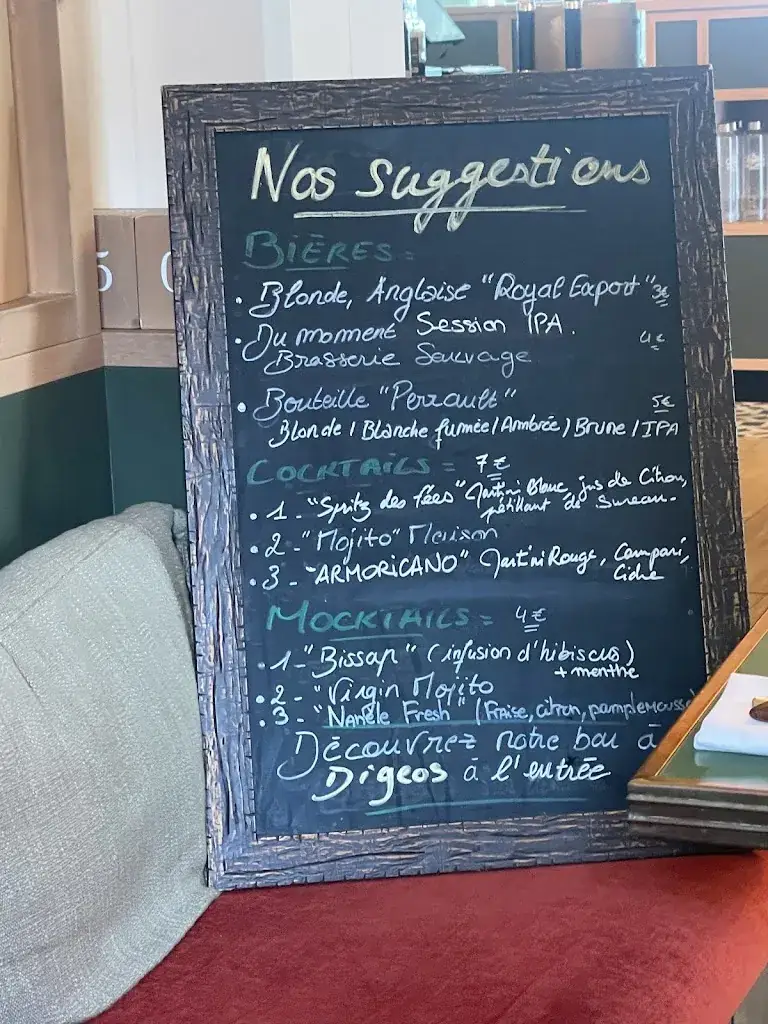 Nos suggestions
BIÈRES =
• Blonde, Anglaise "Royal Export" 3€
• Du moment Session IPA. 4€
Brasserie Sauvage
• Bouteille "Perrault" 5€
Blonde / Blanche fumée / Ambrée / Brune / IPA
COCKTAILS = 7€
• 1 - "Spritz des fées" Martini Blanc, jus de Citron,
pétillant de Sureau -
• 2 - "Mojito" Maison
• 3 - "ARMORICANO" Martini Rouge, Campari,
Cidre
MOCKTAILS = 4€
• 1 - "Bissap" (infusion d'hibiscus)
+ menthe
• 2 - "Virgin Mojito
• 3 - "Nanele Fresh" (Fraise, citron, pamplemousse
Découvrez notre bar à
Digeos à l'entrée
5